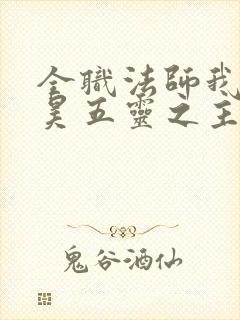 全職法師我
昊五靈之主
鬼谷酒仙